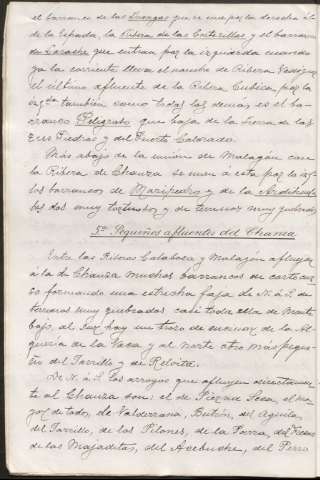 el barranco de las Zrangas que se une por la derecha á la
de la Espada, la Ribera de las Corterillas y el barranco
de Larache que entran por la izquierda cuando
ya la corriente lleva el nombre de Ribera
el último afluente de la Ribera por la
izqda también como todas las demas es el ba-
rranco Peligroso que baja de la Sierra de las
tres Piedras y del Puerto Colorado.
Más abajo de la union de Malagón con
la Ribera de Chanza se unen a esta por la izqda
los barrancos de Maripedro y de la
los dos muy tortuosos y de terreno muy quebrado
5º Pequeños afluentes del Chanza
Entre las Riberas Calabaza y Malagón afluyen
á la de Chanza muchos barrancos de corto cur-
so formando una estrecha faja de N. á S. de
terrenos muy quebrados casi toda ella de monte
bajo, al Sur hay un trozo de encinar de la Al-
queria de la Vaca y al norte otro más peque-
ño del Torrillo y de Relvita.
De N. á S. los arroyos que afluyen directamen-
te al Chanza son: el de Pie seca, el ma-
yor de todos, de Valderrana, Butrón, del Aguila,
del Torrillo, de los Pilones, de la Parra, del
de las Majaditas, del Acebuche, del Perro